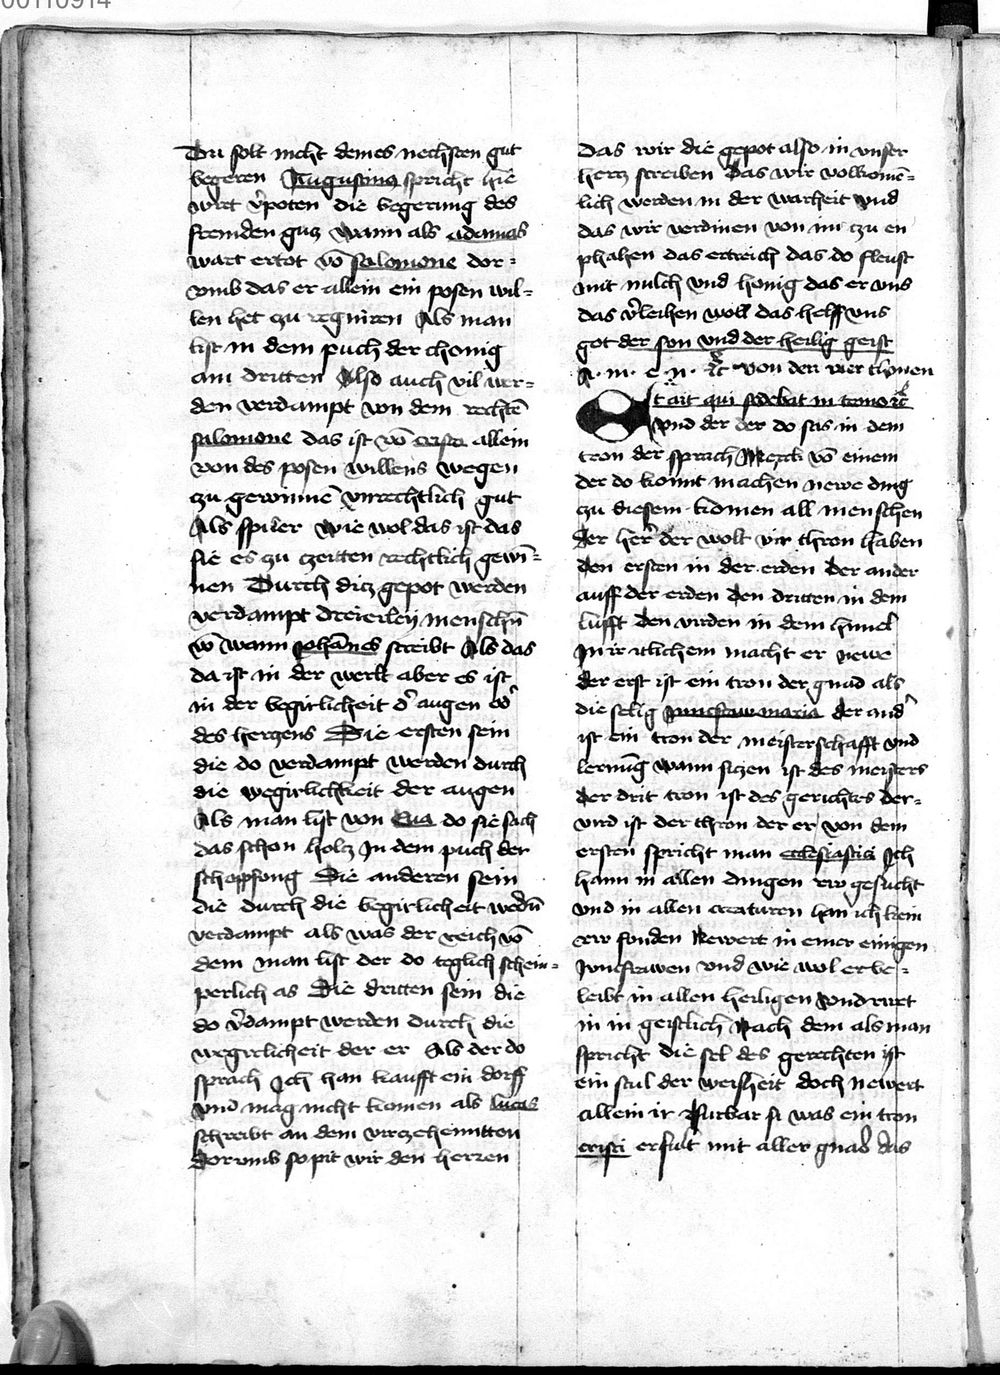 00110914
Du solt nicht deines nechsten gut
begeren Augustinus spricht hie
wirt v̉poten die begerung des
fremden gutz wann als adonias
wart ertot vō salomone dor=
vmb das er allein ein posen wil=
len het zu regniren Als man
list in dem puch der chonig
am dritten Also auch vil wer=
den verdampt von dem rechtē
salomone das ist vō cristo allein
von des posen willens wegen
zu gewinnē vnrechtlich gut
Als spiler wie wol das ist das
sie es zu czeitten rechtlich gewi̅=
nen Durch ditz gepot werden
verdampt dreierley menschn̄
vō wann Johānes screibt Als das
da ist in der werlt aber es ist
in der begirlicheit d̉ augen od̉
des hertzens Die ersten sein
die do verdampt werden durch
die wegirlichkeit der augen
Als man list von Eua do sie sach
das schon holcz In dem puch der
schopffung Die anderen sein
die durch die begirlicheit wedn̄
verdampt als was der reich vō
dem man list der do teglich schein=
perlich as Die dritten sein die
do v̉dampt werden durch die
wegirlicheit der er Als der do
sprach Ich han kaufft ein dorff
vnd mag nicht komen als lucas
schreibt an dem virczehennitten
Dorvmb so pit wir den herren
Das wir die gepot also in vnser
hercz screiben Das wir volkomē=
lich werden in der warheit Vnd
das wir verdinen von im czu en
phahen das ertreich das do fleust
mit milch vnd honig das er vns
das v̉leihen woll das helff vns
got der son vnd der heilig geist
A. m. e. n. ꝛc von den vier thronen
Et ait qui sedebat in trono ꝛc
Vnd der der do sas in dem
tron der sprach Merck vō einem
der do komt machen newe ding
zu diesem komen all menschen
Der her der wolt vir thron haben
Den ersten in der erden Der ander
auff der erden Den dritten in dem
lufft Den virden in dem himel
In ir itlichem macht er newe
der erst ist ein tron der gnad als
die selig Junckfraw maria der and̉
ist ein tron der meisterschafft vnd
lernūg wann siczen ist des meisters
Der drit tron ist des gerichtes Der
vird ist der thron der er von dem
ersten spricht man ecclesiastici Ich
hann in allen dingen rw gesucht
vnd in allen creaturen han ich kein
rw funden Newert in einer einigen
Junckfrawen vnd wie wol er be=
leibt in allen heiligen vnd rwet
in in geistlich Nach dem als man
spricht die sel des gerechten ist
ein stul der weisheit doch newert
allein ir furbar si was ein tron
cristi erfult mit aller gnad das